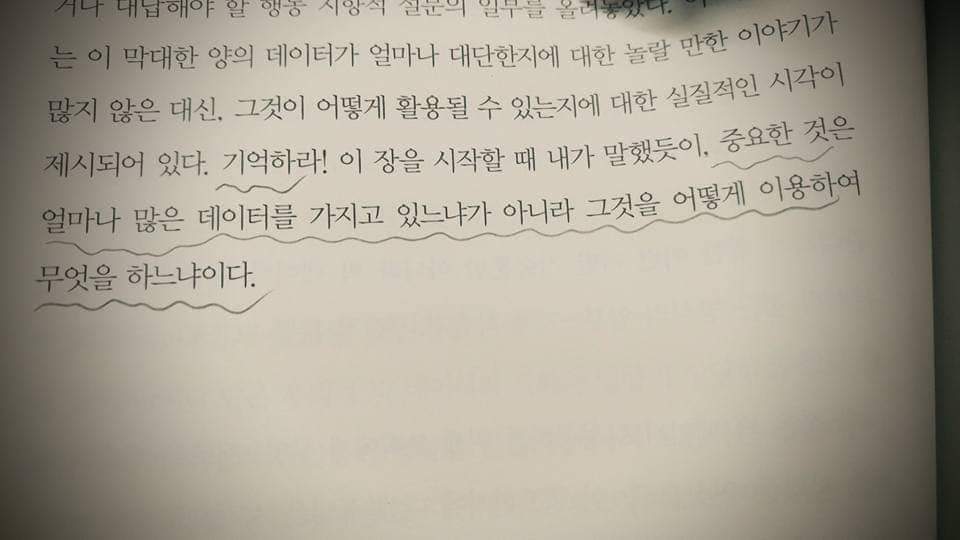 거나 대답해야 할 행동 지향적 질문의 일부를 올려놓았다.
는 이 막대한 양의 데이터가 얼마나 대단한지에 대한 놀랄 만한 이야기가
많지 않은 대신, 그것이 어떻게 활용될 수 있는지에 대한 실질적인 시각이
제시되어 있다. 기억하라! 이 장을 시작할 때 내가 말했듯이, 중요한 것은
얼마나 많은 데이터를 가지고 있느냐가 아니라 그것을 어떻게 이용하여
무엇을 하느냐이다.